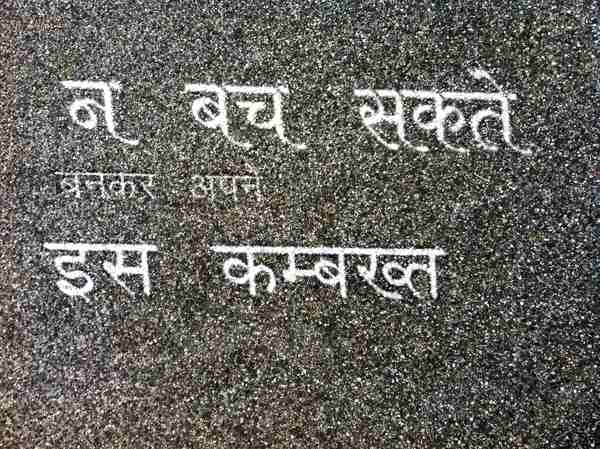 न बच सकते
बनकर अपने
इस कम्बख्त